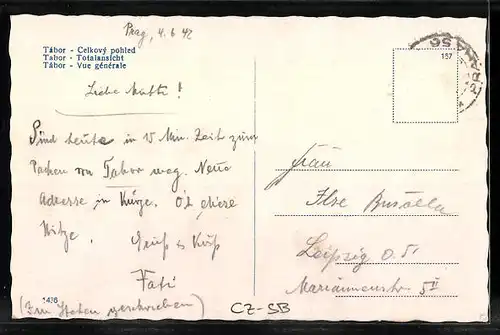 Prag, 4.6.42
Tábor - Celkový pohled
Tabor - Totalansicht
Tábor - Vue générale
157
Liebe Mutti!
Sind heute in 10 Min. Zeit zum
Packen von Tabor weg. Neue
Adresse in Kürze. O, diese
Hitze. Gruß & Kuß
(Im Stehen geschrieben)
Frau
Ilse
Leipzig O. 5.
Mariannenstr. 5 II
1438
CZ-SB